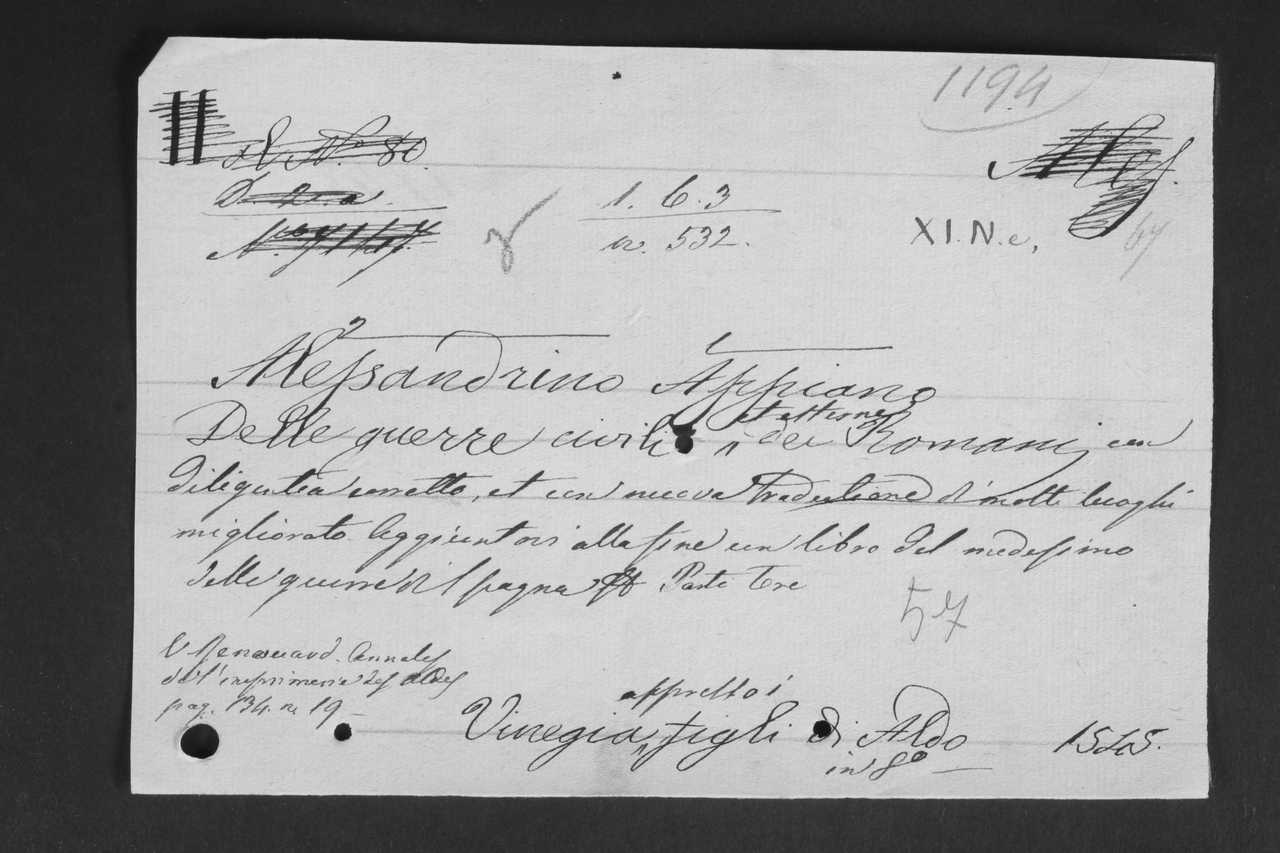 1194
No 80.
1. 6. 3
n. 532.
XI.N.e,
67
Alessandrino Appiano
et esterne
Delle guerre civili dei Romani, con
diligentia corretto, et con nuova traductione di molti luoghi
migliorato. Aggiuntovi alla fine un libro del medessimo
delle guerre di Spagna Parte tre
57
V Renouard. Annales
de l'imprimerie des Aldes
pag. 134. no 19
appresso i
Vinegia, figli di Aldo 1545.
in 8o